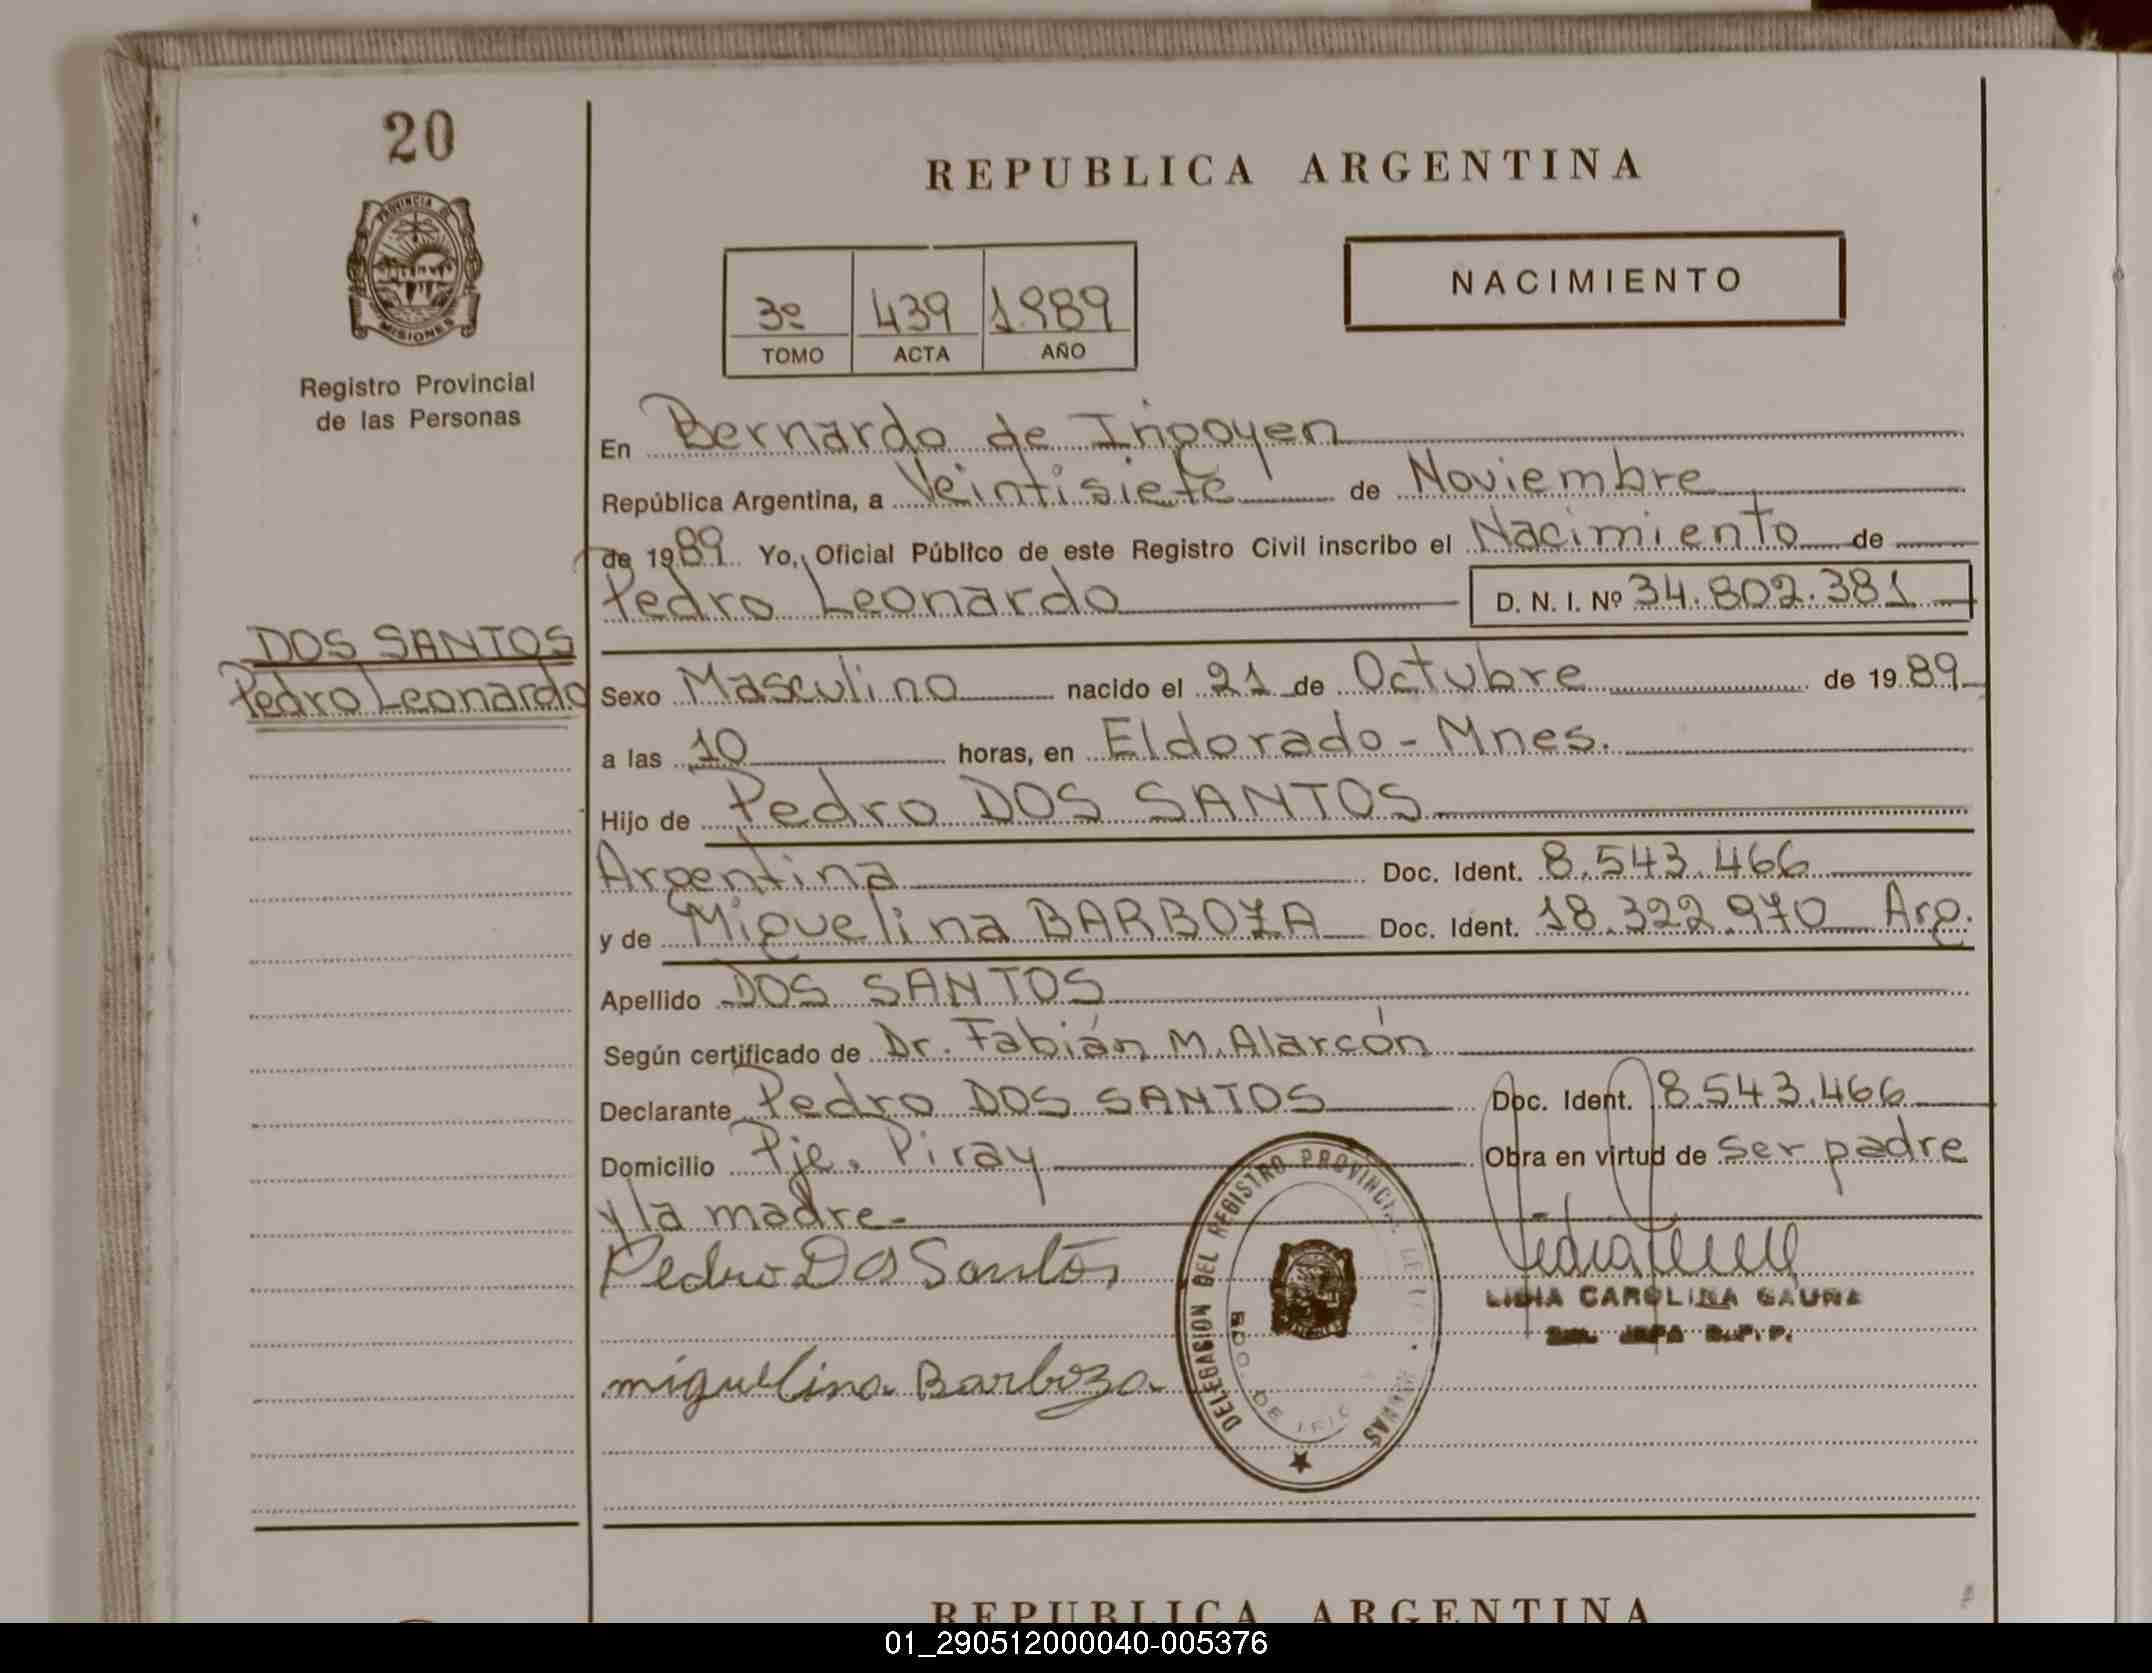 20
PROVINCIA DE
MISIONES
Registro Provincial
de las Personas
DOS SANTOS
Pedro Leonardo
REPUBLICA ARGENTINA
3º 439 1989
TOMO ACTA AÑO
NACIMIENTO
En Bernardo de Irigoyen
República Argentina, a Veintisiete de Noviembre
de 1989 Yo, Oficial Público de este Registro Civil inscribo el Nacimiento de
Pedro Leonardo D. N. I. Nº 34.802.381
Sexo Masculino nacido el 21 de Octubre de 1989
a las 10 horas, en Eldorado - Mnes.
Hijo de Pedro DOS SANTOS
Argentina Doc. Ident. 8.543.466
y de Miguelina BARBOZA Doc. Ident. 18.322.970 Arg.
Apellido DOS SANTOS
Según certificado de Dr. Fabián M. Alarcón
Declarante Pedro DOS SANTOS Doc. Ident. 8.543.466
Domicilio Pje. Piray Obra en virtud de ser padre
y la madre-
Pedro Dos Santos
miguelina Barboza
DELEGACION DEL REGISTRO PROVINCIAL DE LAS PERSONAS
BDO. DE
LIDIA CAROLINA GAUNA
JEFA R.P.P.
REPUBLICA ARGENTINA
01_290512000040-005376